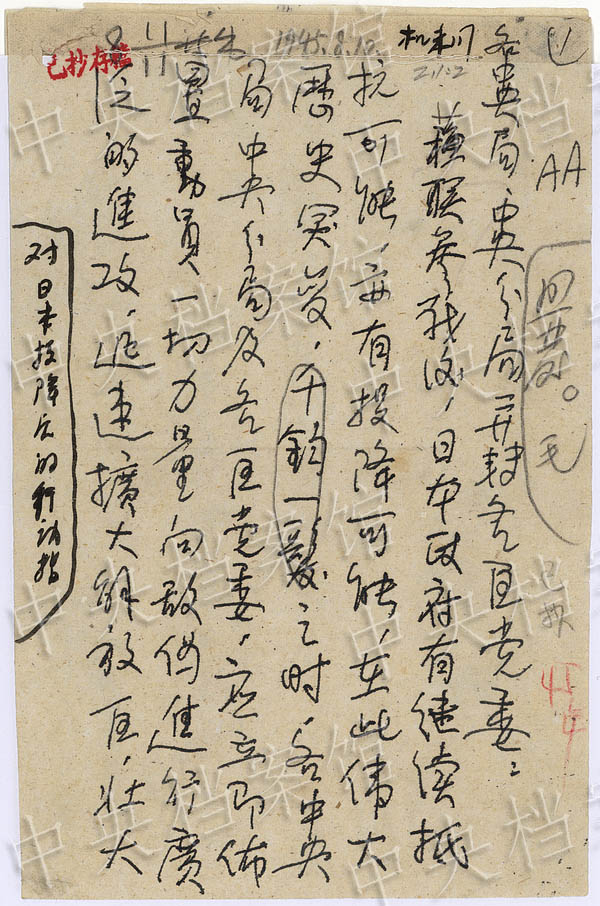 1
AA
照发。毛
已抄
45年
1945.8.10.
已抄存档
各央局、中央分局并转各区党委：
蘇联参战后，日本政府有继续抵
抗可能，亦有投降可能，在此伟大
歷史突变，千鈞一髮之时，各中央
局中央分局及各区党委，应立即佈
置動員一切力量向敌伪進行廣
泛的進攻，迅速擴大解放区，壮大
对日本投降后的行动指
中央档案馆